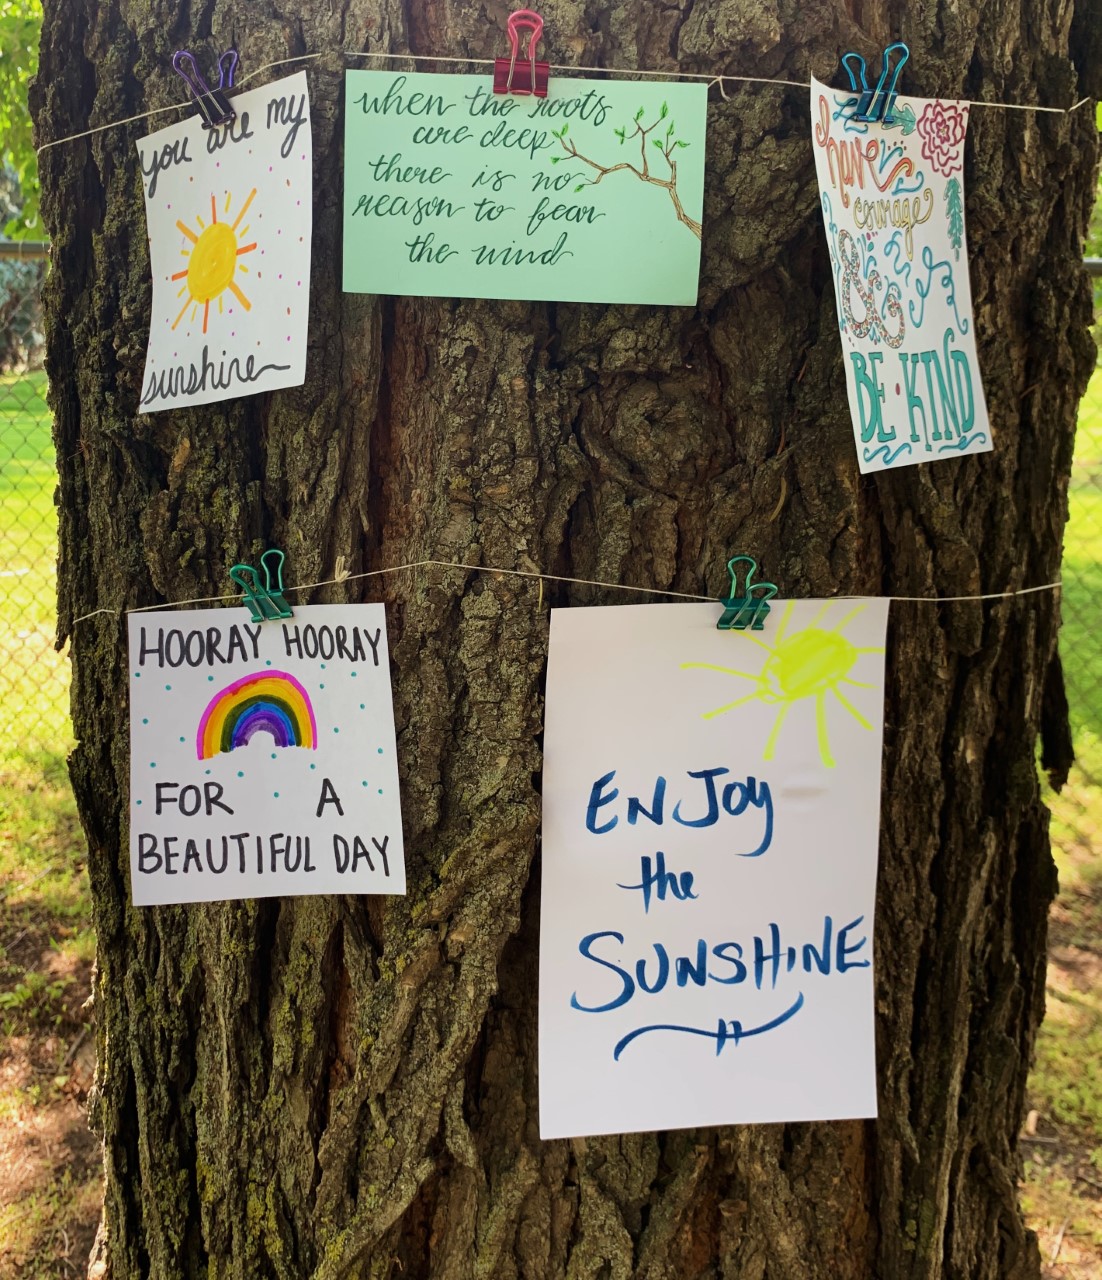 you are my
sunshine
when the roots
are deep
there is no
reason to fear
the wind
have
courage
&
BE · KIND
HOORAY HOORAY
FOR A
BEAUTIFUL DAY
ENJOY
the
SUNSHINE